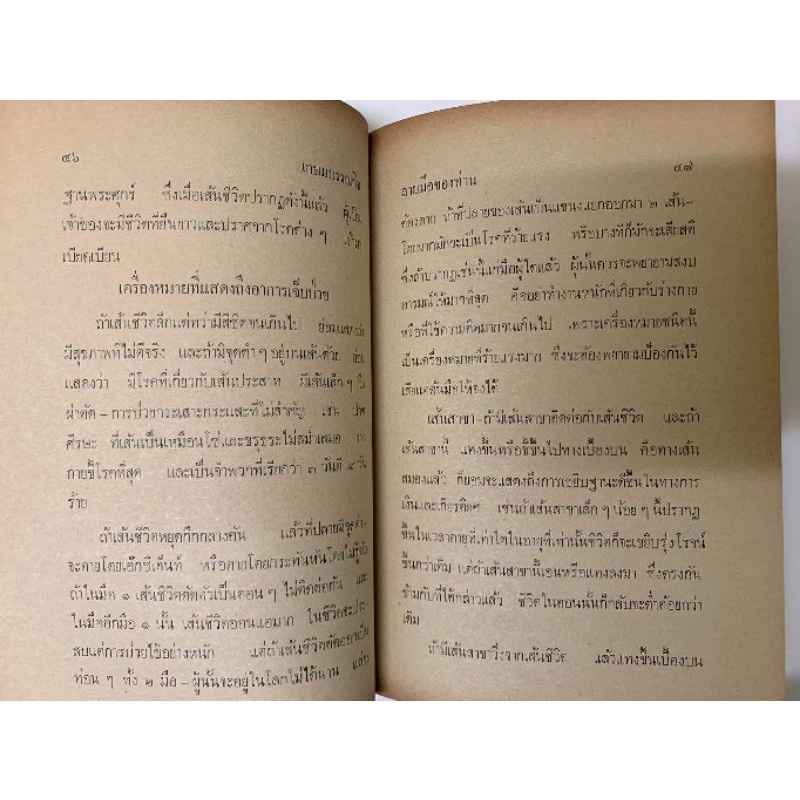 ๔๖ เกษมบรรณกิจ
ฐานพระศุกร์ ซึ่งเมื่อเส้นชีวิตปรากฏดังนี้แล้ว ผู้เป็น
เจ้าของจะมีชีวิตที่ยืนยาวและปราศจากโรคต่าง ๆ
เบียดเบียน
เครื่องหมายที่แสดงถึงอาการเจ็บป่วย
ถ้าเส้นชีวิตลึกแต่ทว่ามีสีซีดจนเกินไป ย่อมแสดงว่า
มีสุขภาพที่ไม่ดีจริง และถ้ามีจุดดำ ๆ อยู่บนเส้นด้วย ย่อม
แสดงว่า มีโรคที่เกี่ยวกับเส้นประสาท มีเส้นเล็ก ๆ
ผ่าตัด – การป่วยาะเสาะกระแสะที่ไม่สำคัญ เช่น ปวด
ศีรษะ ที่เส้นเป็นเหมือนโซ่และขรุขระไม่สม่ำเสมอ
กายขี้โรคที่สุด และเป็นจำพวกที่เรียกว่า ๓ วันดี ๔ วัน
ร้าย
ถ้าเส้นชีวิตหยุดกึกกลางคัน แล้วที่ปลายมีจุดดำ–
จะตายโดยเอ๊กซิเด็นท์ หรือตายโดยกระทันหันโดยไม่รู้ตัว
ถ้าในมือ ๑ เส้นชีวิตตัดตัวเป็นตอน ๆ ไม่ติดต่อกัน และ
ในมืออีกมือ ๑ นั้น เส้นชีวิตอ่อนแอมาก ในชีวิตจะประ
สบแต่การป่วยไข้อย่างหนัก แต่ถ้าเส้นชีวิตตัดออกเป็น
ท่อน ๆ ทั้ง ๒ มือ – ผู้นั้นจะอยู่ในโลกไม่ได้นาน
ลายมือของท่าน ๔๗
ต้องตาย ถ้าที่ปลายของเส้นเป็นแขนงแยกออกมา ๒ เส้น–
โดยมากมักจะเป็นโรคที่ร้ายแรง หรือบางทีก็มักจะเสียสติ
ซึ่งถ้าปรากฏเช่นนี้แก่มือผู้ใดแล้ว ผู้นั้นควรจะพยายามสงบ
อารมณ์ให้มากที่สุด คืออย่าทำงานหนักที่เกี่ยวกับร่างกาย
หรือที่ใช้ความคิดมากจนเกินไป เพราะเครื่องหมายชนิดนี้
เป็นเครื่องหมายที่ร้ายแรงมาก ซึ่งจะต้องพยายามป้องกันไว้
เสียแต่ต้นมือให้จงได้
เส้นสาขา – ถ้ามีเส้นสาขาติดต่อกับเส้นชีวิต และถ้า
เส้นสาขานี้ แทงขึ้นหรือชี้ขึ้นไปทางเบื้องบน คือทางเส้น
สมองแล้ว ก็ย่อมจะแสดงถึงการเขยิบฐานะดีขึ้นในทางการ
เงินและเกียรติยศ เช่นถ้าเส้นสาขาเล็ก ๆ น้อย ๆ นี้ปรากฏ
ขึ้นในเวลาอายุที่เท่าใดในอายุที่เท่านั้นชีวิตก็จะเขยิบรุ่งโรจน์
ขึ้นกว่าเดิม แต่ถ้าเส้นสาขานี้เอนหรือแทงลงมา ซึ่งตรงกัน
ข้ามกับที่ได้กล่าวแล้ว ชีวิตในตอนนั้นก็กลับจะต่ำต้อยกว่า
เดิม
ถ้ามีเส้นสาขาวิ่งจากเส้นชีวิต แล้วแทงขึ้นเบื้องบน